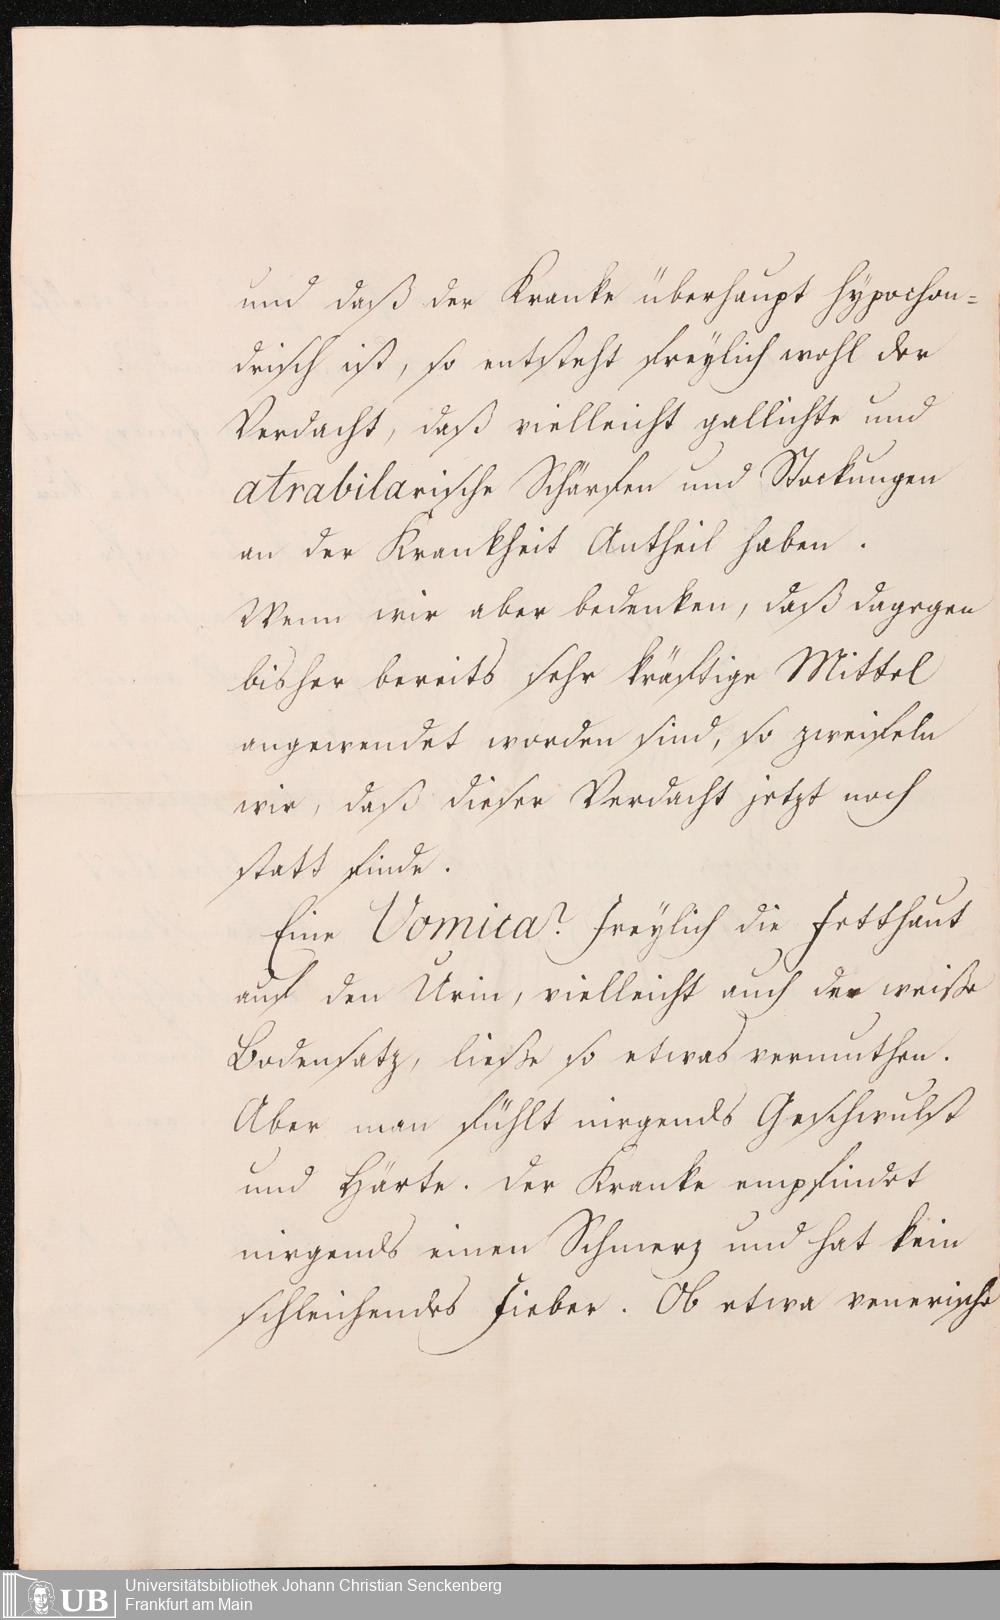 und daß der Kranke überhaupt hÿpochon=
drisch ist, so entsteht freÿlich wohl der
Verdacht, daß vielleicht gallichte und
atrabilarische Schärfen und Stockungen
an der Krankheit Antheil haben.
Wenn wir aber bedenken, daß dagegen
bisher bereits sehr kräftige Mittel
angewendet worden sind, so zweifeln
wir, daß dieser Verdacht jetzt noch
statt finde.
Eine Vomica? Freÿlich die Fetthaut
auf den Urin, vielleicht auch der weiße
Bodensatz, ließe so etwas vermuthen.
Aber man fühlt nirgends Geschwulst
und Härte. Der Kranke empfindet
nirgends einen Schmerz und hat kein
schleichendes Fieber. Ob etwa venerische
UB
Universitätsbibliothek Johann Christian Senckenberg
Frankfurt am Main